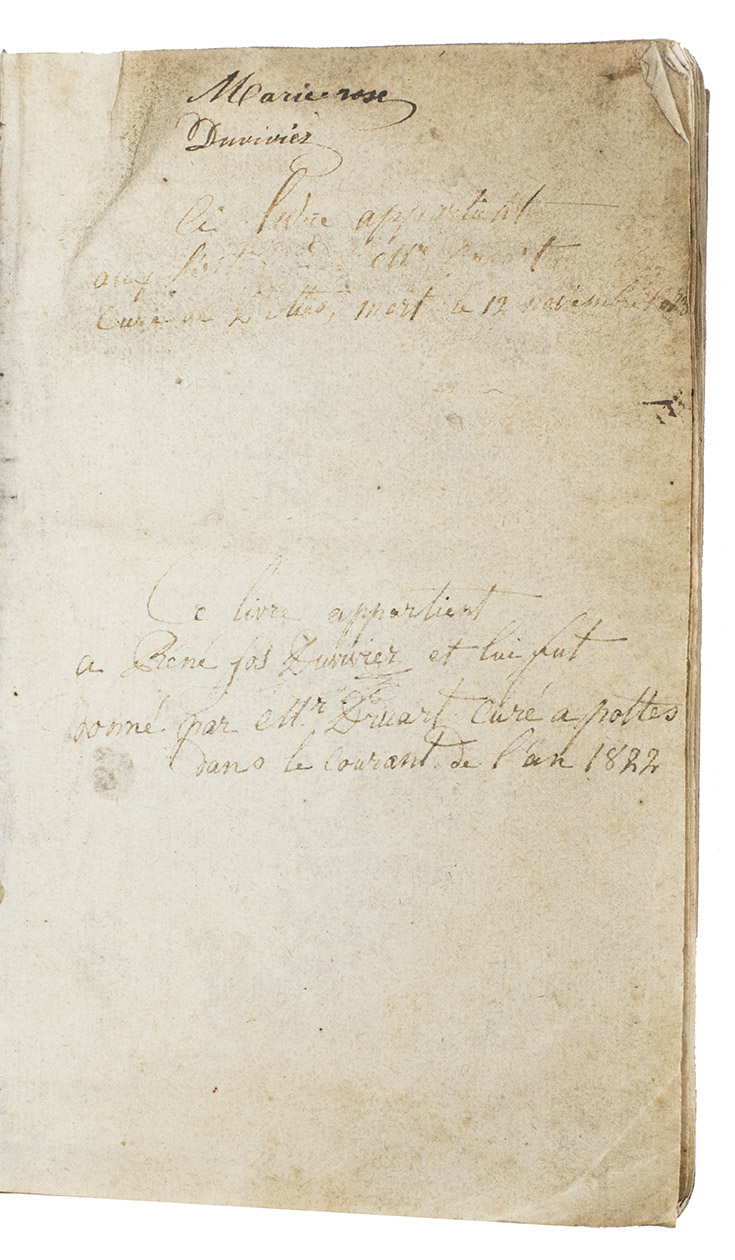 Marie rose
Duvivier
Ce livre appartient
aux Mr
Curé mort le 12 novembre
Ce livre appartient
a Réné Jos Duvivier et lui fut
donné par Mr. Druart Curé a pottes
dans le Courant de l'an 1822